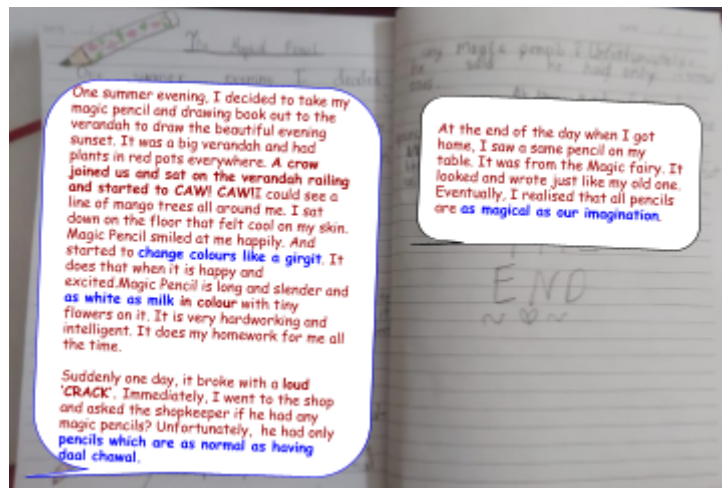 The Magical Pencil
One summer evening, I decided to take my
magic pencil and drawing book out to the
verandah to draw the beautiful evening
sunset. It was a big verandah and had
plants in red pots everywhere. A crow
joined us and sat on the verandah railing
and started to CAW! CAW!I could see a
line of mango trees all around me. I sat
down on the floor that felt cool on my skin.
Magic Pencil smiled at me happily. And
started to change colours like a girgit. It
does that when it is happy and
excited.Magic Pencil is long and slender and
as white as milk in colour with tiny
flowers on it. It is very hardworking and
intelligent. It does my homework for me all
the time.
Suddenly one day, it broke with a loud
'CRACK'. Immediately, I went to the shop
and asked the shopkeeper if he had any
magic pencils? Unfortunately, he had only
pencils which are as normal as having
daal chawal.
any Magic pencils? Unfortunately,
he said he had only normal
At the end of the day when I got
home, I saw a same pencil on my
table. It was from the Magic fairy. It
looked and wrote just like my old one.
Eventually, I realised that all pencils
are as magical as our imagination.
END